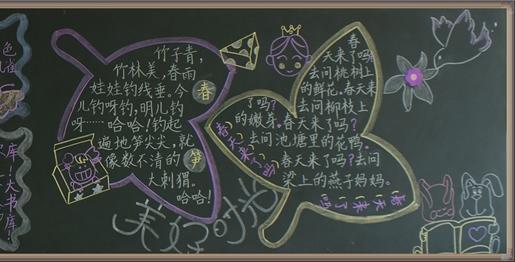 色
雀
库
!
大
书
库
竹子青，
竹林美，春雨
娃娃钓线垂。今
儿钓呀钓，明儿钓
呀……哈哈！钓起
遍地笋尖尖，就
像数不清的
大刺猬。
哈哈！
春
笋
春
天来了吗？
去问桃树上
的鲜花。春天来
了吗？去问柳枝上
的嫩芽。春天来了吗？
去问池塘里的花鸭。
春天来了吗？去问
梁上的燕子妈妈。
春天来了吗
春天来了吗
美好时光